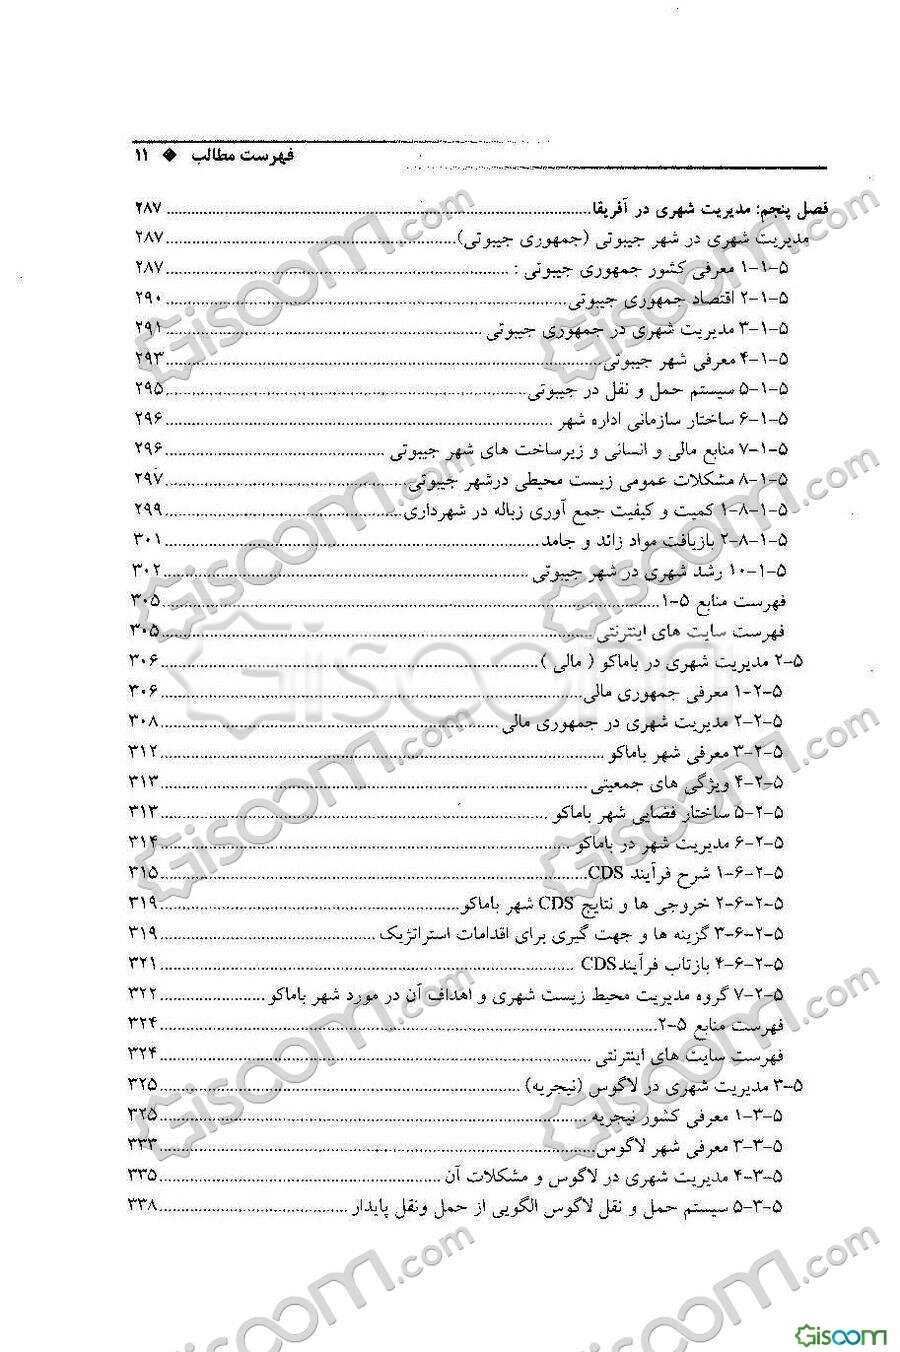 فهرست مطالب ◆ ۱۱
فصل پنجم: مدیریت شهری در آفریقا ........ ۲۸۷
مدیریت شهری در شهر جیبوتی (جمهوری جیبوتی) ........ ۲۸۷
۵-۱-۱ معرفی کشور جمهوری جیبوتی : ........ ۲۸۷
۵-۱-۲ اقتصاد جمهوری جیبوتی ........ ۲۹۰
۵-۱-۳ مدیریت شهری در جمهوری جیبوتی ........ ۲۹۱
۵-۱-۴ معرفی شهر جیبوتی ........ ۲۹۳
۵-۱-۵ سیستم حمل و نقل در جیبوتی ........ ۲۹۵
۵-۱-۶ ساختار سازمانی اداره شهر ........ ۲۹۶
۵-۱-۷ منابع مالی و انسانی و زیرساخت های شهر جیبوتی ........ ۲۹۶
۵-۱-۸ مشکلات عمومی زیست محیطی درشهر جیبوتی ........ ۲۹۷
۵-۱-۸-۱ کمیت و کیفیت جمع آوری زباله در شهرداری ........ ۲۹۹
۵-۱-۸-۲ بازیافت مواد زائد و جامد ........ ۳۰۱
۵-۱-۱۰ رشد شهری در شهر جیبوتی ........ ۳۰۲
فهرست منابع ۵-۱ ........ ۳۰۵
فهرست سایت های اینترنتی ........ ۳۰۵
۵-۲ مدیریت شهری در باماکو ( مالی ) ........ ۳۰۶
۵-۲-۱ معرفی جمهوری مالی ........ ۳۰۶
۵-۲-۲ مدیریت شهری در جمهوری مالی ........ ۳۰۸
۵-۲-۳ معرفی شهر باماکو ........ ۳۱۲
۵-۲-۴ ویژگی های جمعیتی ........ ۳۱۳
۵-۲-۵ ساختار فضایی شهر باماکو ........ ۳۱۳
۵-۲-۶ مدیریت شهر در باماکو ........ ۳۱۴
۵-۲-۶-۱ شرح فرآیند CDS ........ ۳۱۵
۵-۲-۶-۲ خروجی ها و نتایج CDS شهر باماکو ........ ۳۱۹
۵-۲-۶-۳ گزینه ها و جهت گیری برای اقدامات استراتژیک ........ ۳۱۹
۵-۲-۶-۴ بازتاب فرآیندCDS ........ ۳۲۱
۵-۲-۷ گروه مدیریت محیط زیست شهری و اهداف آن در مورد شهر باماکو ........ ۳۲۲
فهرست منابع ۵-۲ ........ ۳۲۴
فهرست سایت های اینترنتی ........ ۳۲۴
۵-۳ مدیریت شهری در لاگوس (نیجریه) ........ ۳۲۵
۵-۳-۱ معرفی کشور نیجریه ........ ۳۲۵
۵-۳-۳ معرفی شهر لاگوس ........ ۳۳۳
۵-۳-۴ مدیریت شهری در لاگوس و مشکلات آن ........ ۳۳۵
۵-۳-۵ سیستم حمل و نقل لاگوس الگویی از حمل ونقل پایدار ........ ۳۳۸
Gisoom.com
Gisoom